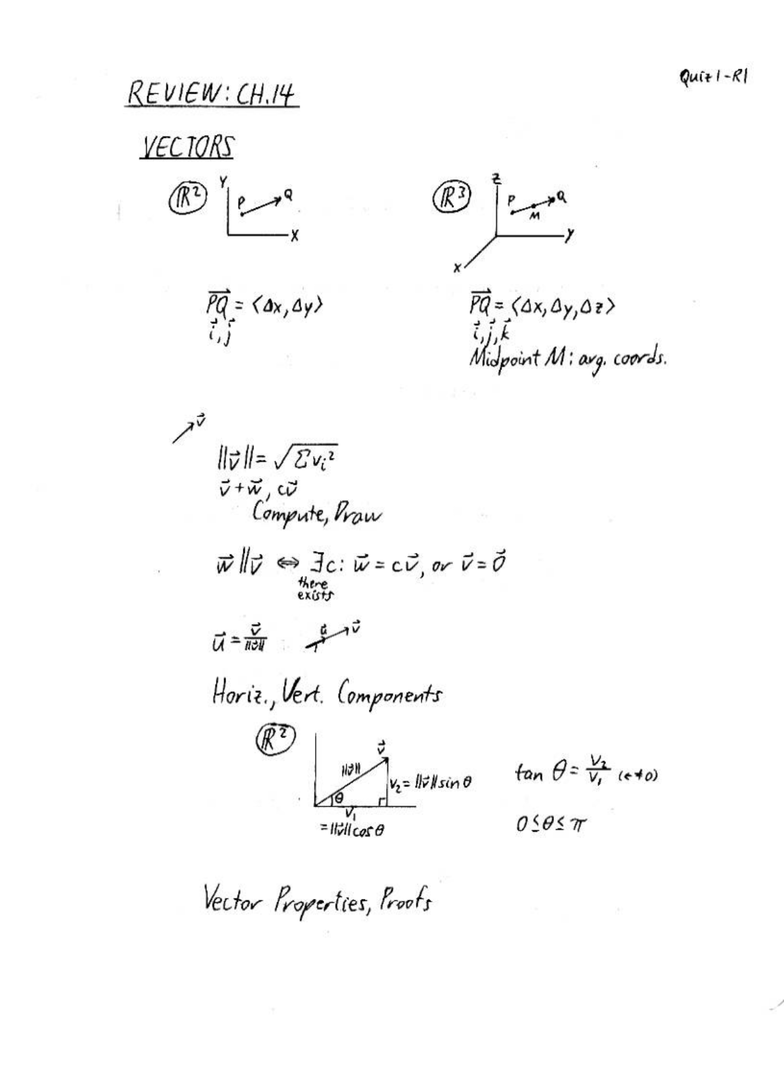 Quiz 1-R1
REVIEW: CH.14
VECTORS
ℝ² Y P Q X
ℝ³ Z P M Q Y X
PQ⃗ = ⟨Δx, Δy⟩
i⃗, j⃗
PQ⃗ = ⟨Δx, Δy, Δz⟩
i⃗, j⃗, k⃗
Midpoint M: avg. coords.
v⃗
||v⃗|| = √Σvᵢ²
v⃗ + w⃗, cv⃗
Compute, Draw
w⃗ || v⃗ ⇔ ∃c: w⃗ = cv⃗, or v⃗ = 0⃗
there
exists
u⃗ = v⃗/||v⃗|| u⃗ v⃗
Horiz., Vert. Components
ℝ²
v⃗
||v⃗||
θ
v₂ = ||v⃗|| sin θ
v₁
= ||v⃗|| cos θ
tan θ = v₂/v₁ (←≠0)
0 ≤ θ ≤ π
Vector Properties, Proofs